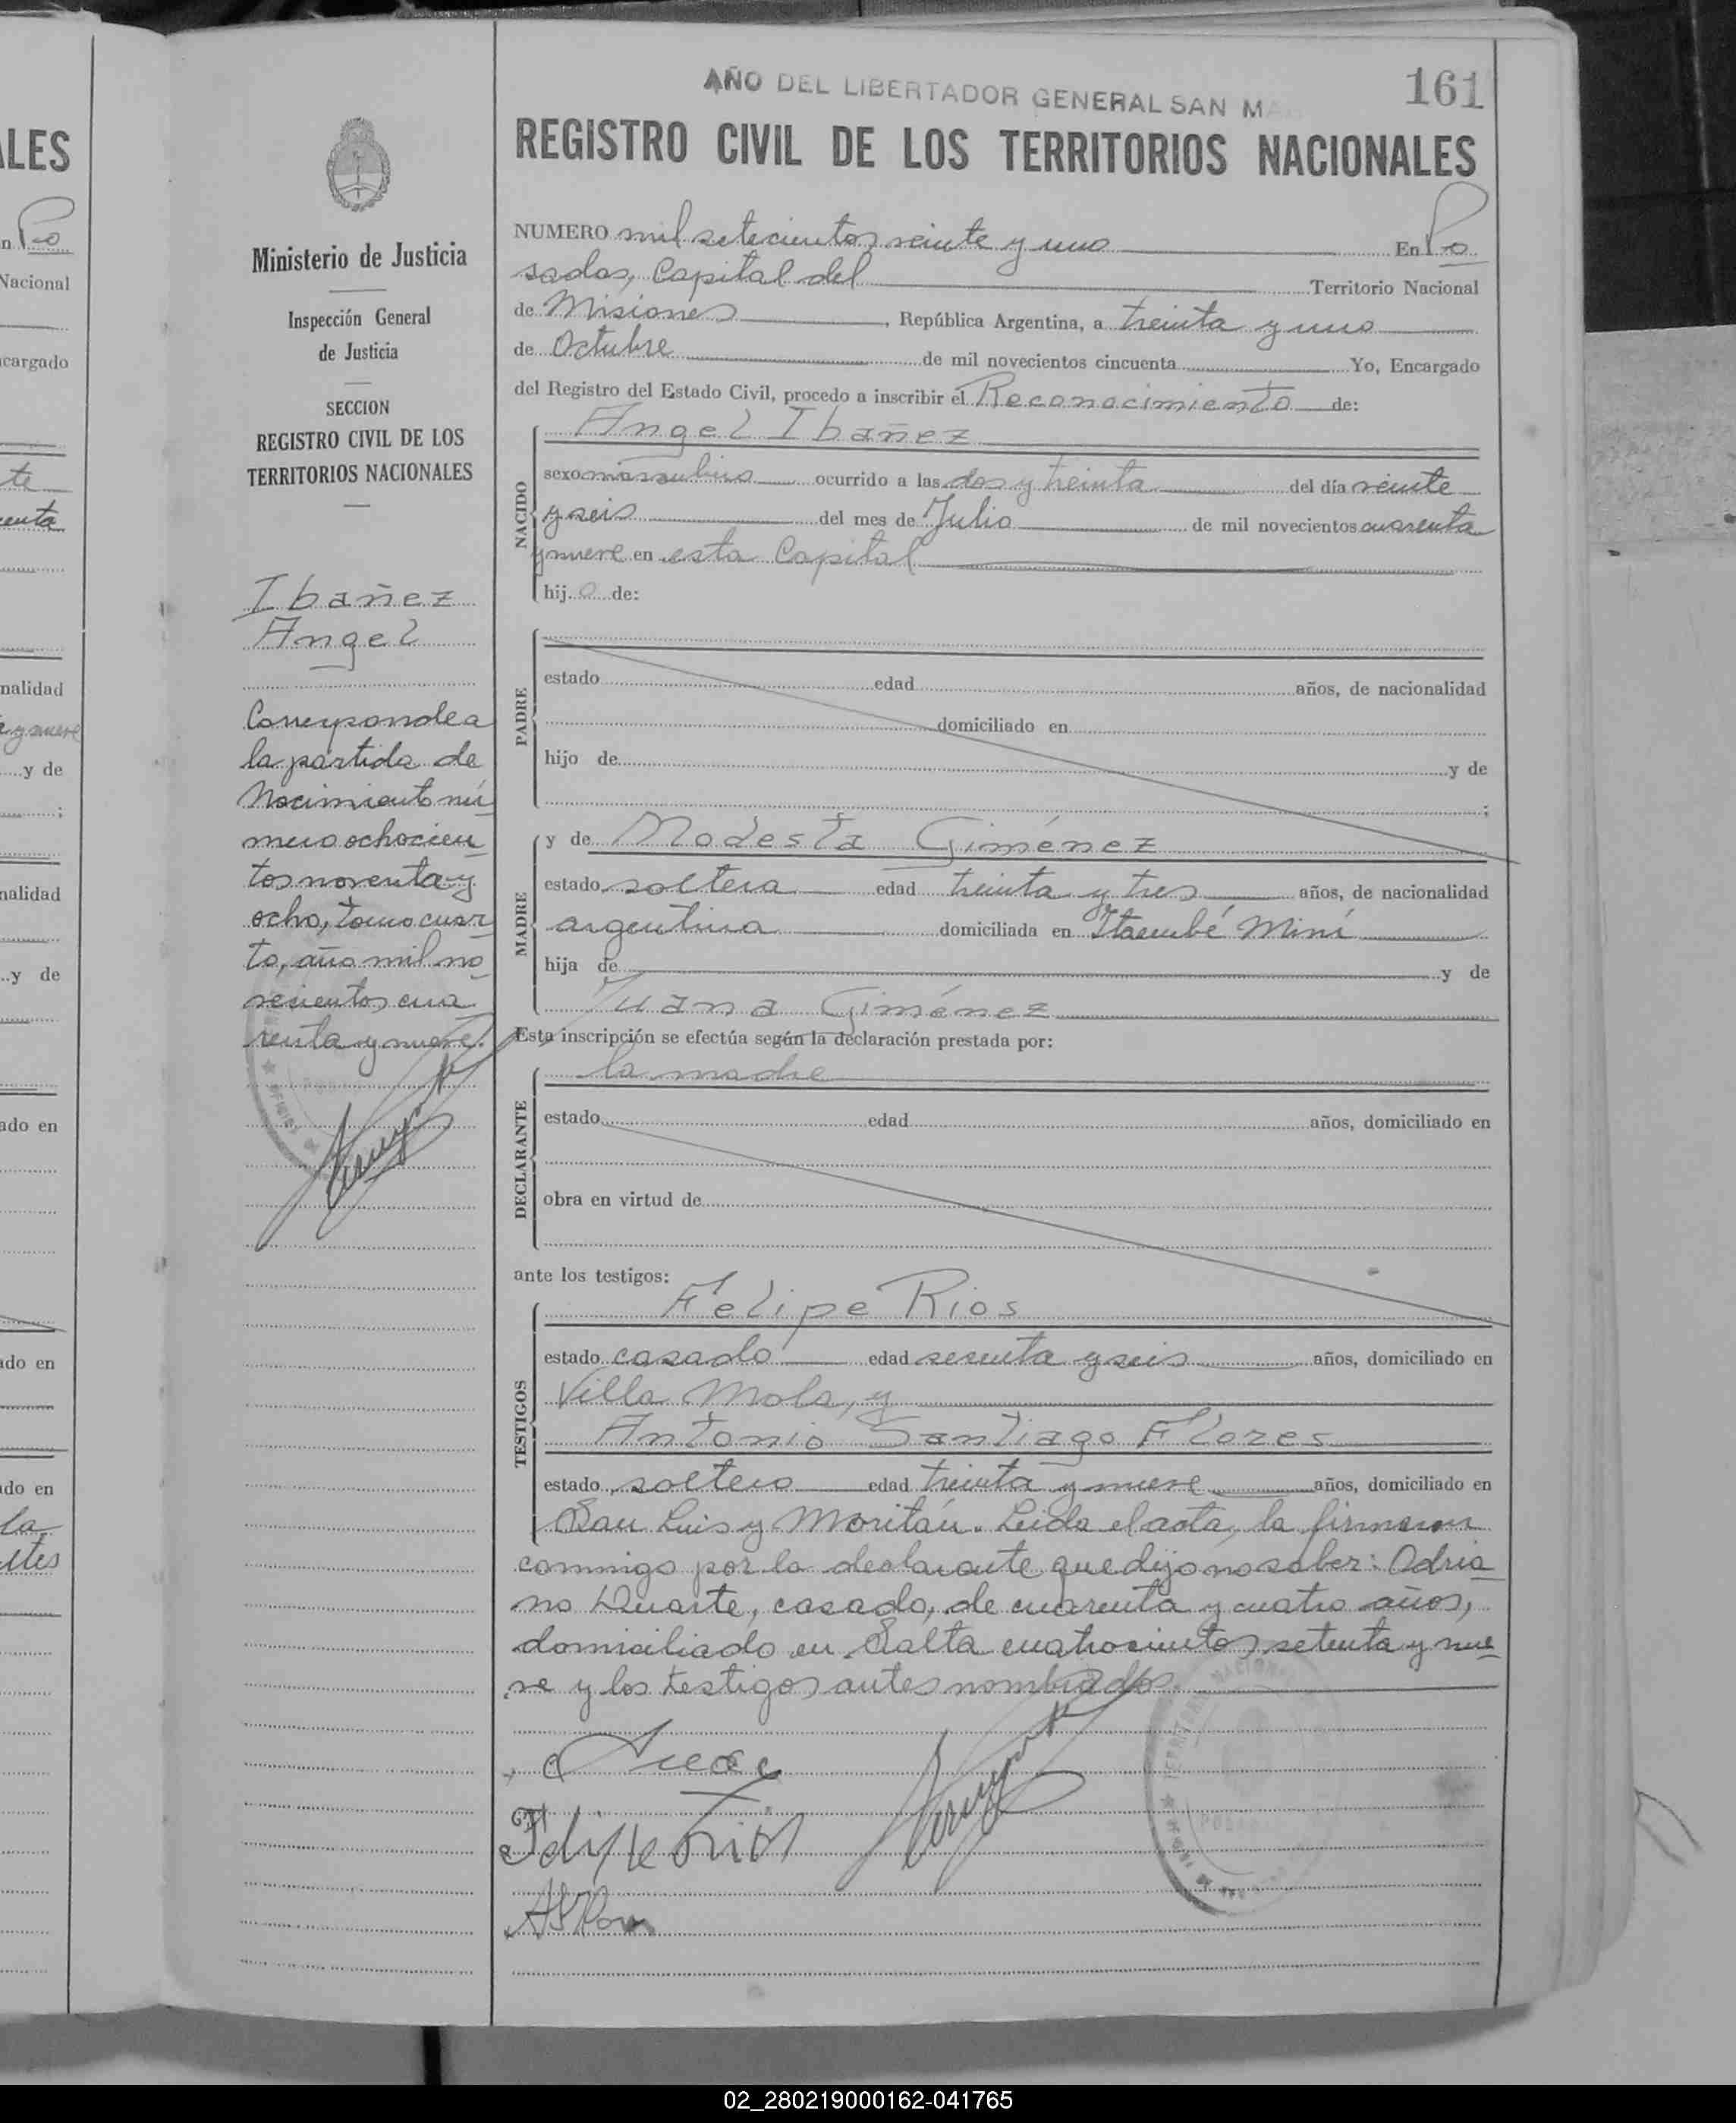 AÑO DEL LIBERTADOR GENERAL SAN MA
161
REGISTRO CIVIL DE LOS TERRITORIOS NACIONALES
Ministerio de Justicia
Inspección General
de Justicia
SECCION
REGISTRO CIVIL DE LOS
TERRITORIOS NACIONALES
Ibañez
Angel
Corresponde a
la partida de
Nacimiento nú
mero ochocien
tos noventa y
ocho, tomo cuar
to, año mil no
vecientos cua
renta y nueve.
NUMERO mil setecientos veinte y uno En Po
sadas, Capital del Territorio Nacional
de Misiones, República Argentina, a treinta y uno
de Octubre de mil novecientos cincuenta Yo, Encargado
del Registro del Estado Civil, procedo a inscribir el Reconocimiento de:
NACIDO
Angel Ibañez
sexo masculino ocurrido a las dos y treinta del día veinte
y seis del mes de Julio de mil novecientos cuarenta
y nueve en esta Capital
hijo de:
PADRE
estado edad años, de nacionalidad
domiciliado en
hijo de y de
;
MADRE
y de Modesta Giménez
estado soltera edad treinta y tres años, de nacionalidad
argentina domiciliada en Itaembé Miní
hija de y de
Juana Giménez
Esta inscripción se efectúa según la declaración prestada por:
DECLARANTE
la madre
estado edad años, domiciliado en
obra en virtud de
ante los testigos:
TESTIGOS
Felipe Rios
estado casado edad sesenta y seis años, domiciliado en
Villa Mola, y
Antonio Santiago Flores
estado soltero edad treinta y nueve años, domiciliado en
San Luis y Moritán. Leida el acta, la firmaron
conmigo por la declarante que dijo no saber: Adria
no Duarte, casado, de cuarenta y cuatro años,
domiciliado en Salta cuatrocientos setenta y nue
ve y los testigos antes nombrados.
Felipe Rios
02_280219000162-041765